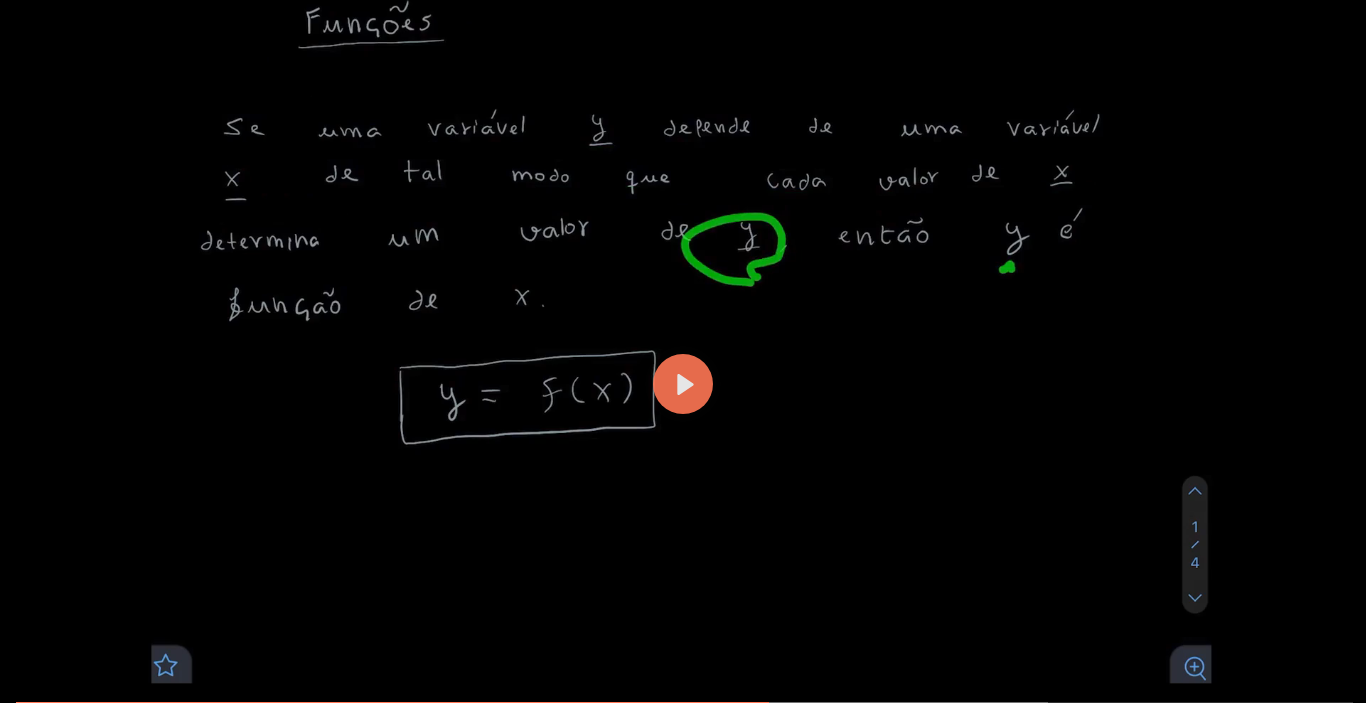 Funções
Se uma variável y depende de uma variável
x de tal modo que cada valor de x
determina um valor de y então y é
função de x.
y = f(x)
1
/
4